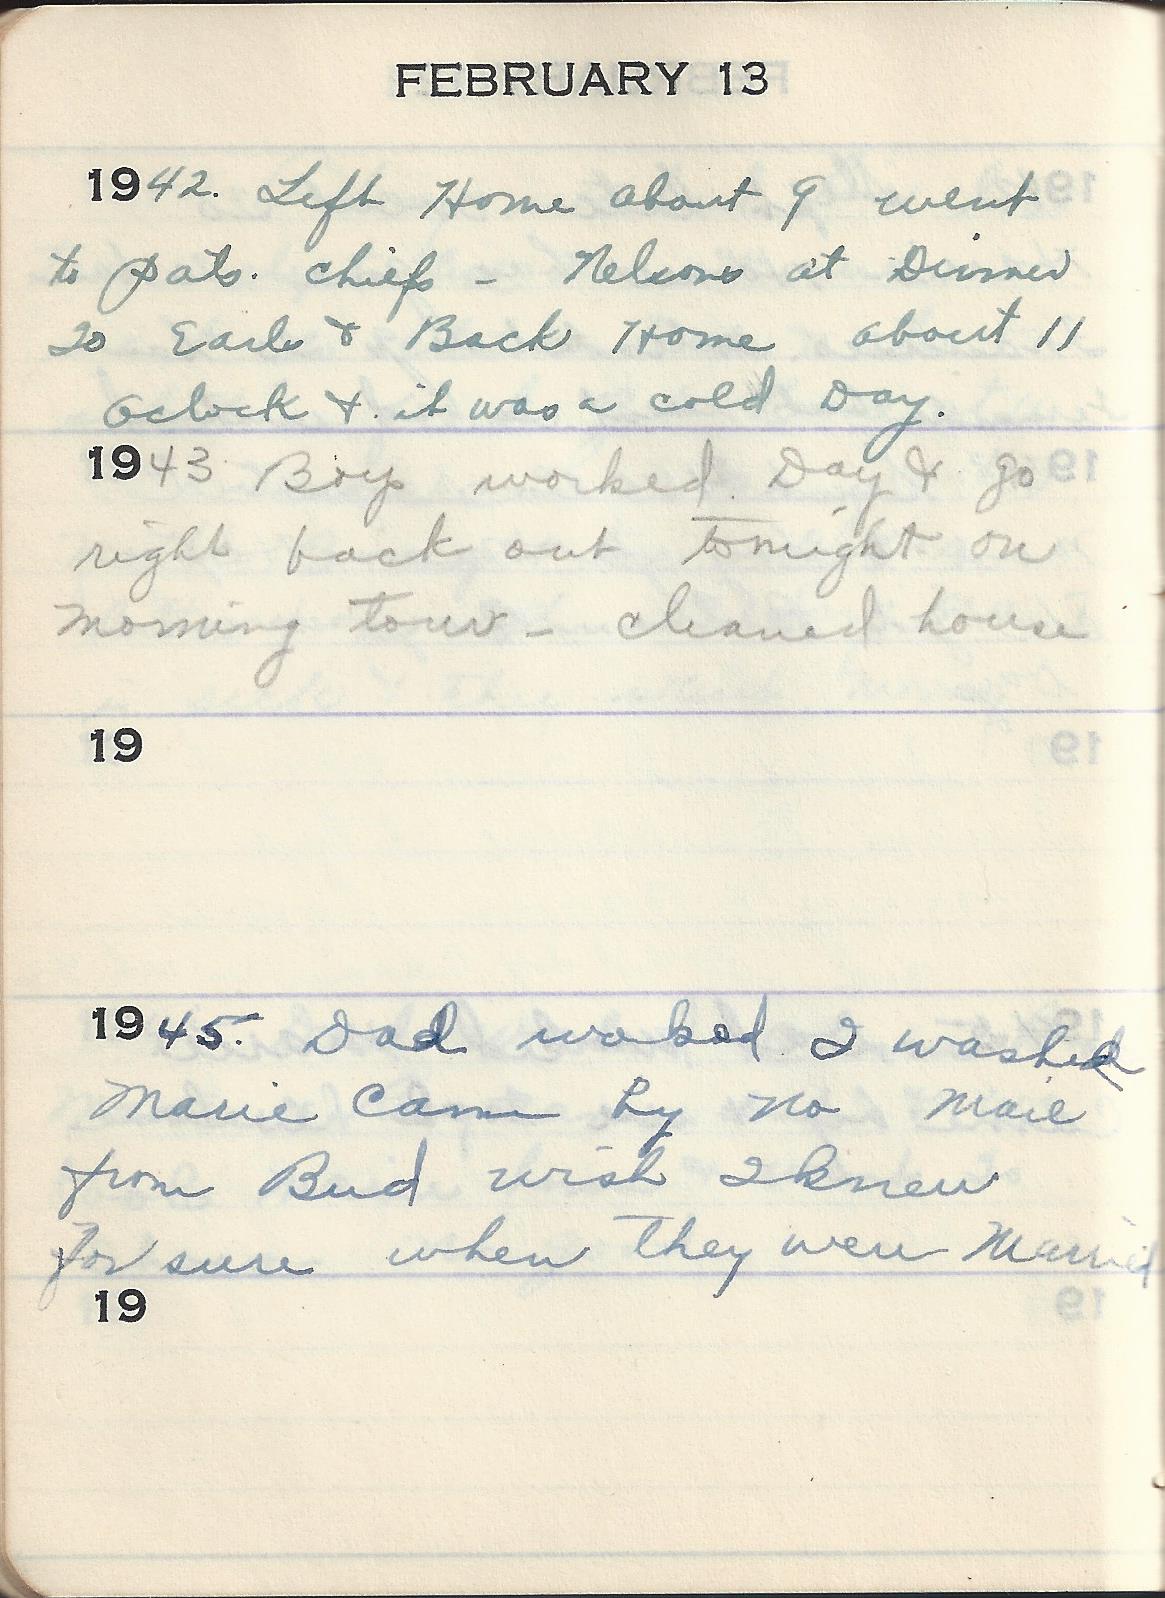 FEBRUARY 13
1942. Left Home about 9 went
to pats. chiefs - Nelsons at Dinner
To Earls & Back Home about 11
Oclock & it was a cold Day.
1943 Boys worked. Day & go
right back out tonight on
morning tour - cleaned house
19
1945. Dad worked I washed
Marie came by no mail
from Bud wish I knew
for sure when they were Married
19